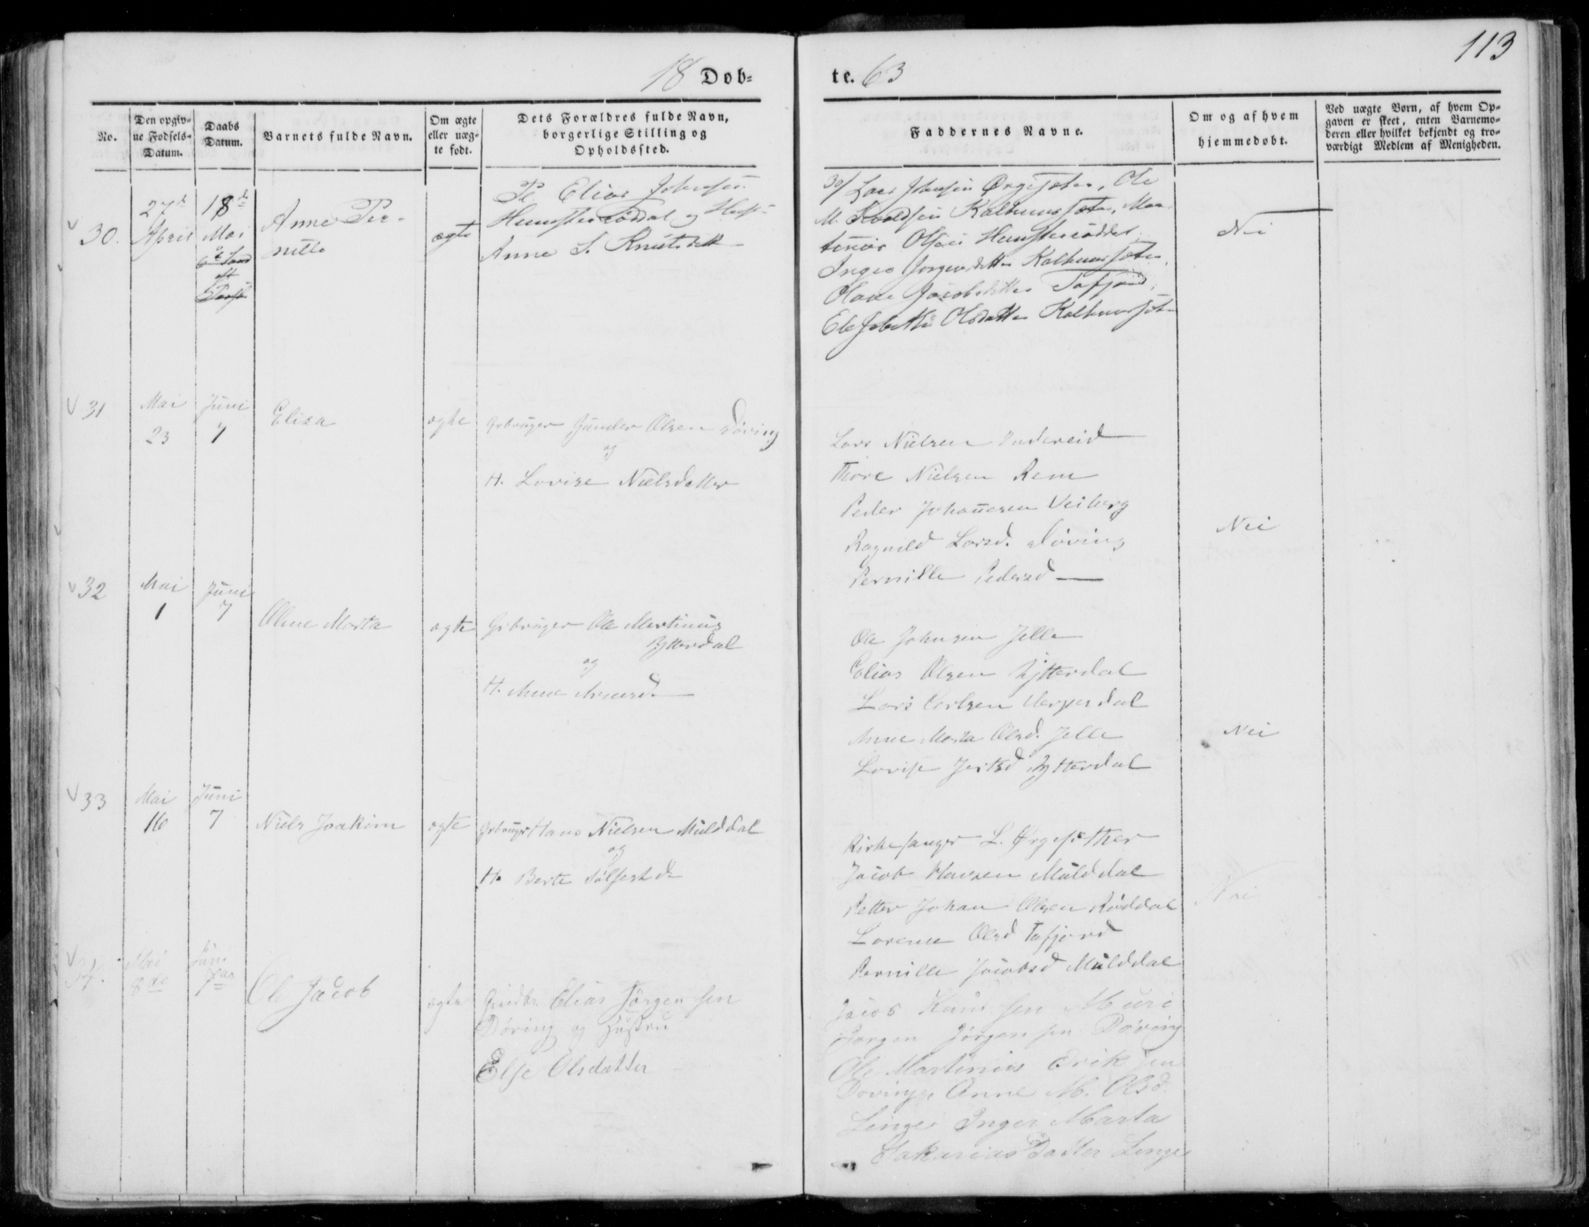 113
18 Døb=
te. 63
No.
Den opgiv-
ne Fødsels-
Datum.
Daabs
Datum.
Barnets fulde Navn.
Om ægte
eller uæg-
te født.
Dets Forældres fulde Navn,
borgerlige Stilling og
Opholdssted.
Faddernes Navne.
Om og af hvem
hjemmedøbt.
Ved uægte Børn, af hvem Op-
gaven er skeet, enten Barnemo-
deren eller hvilket bekjendt og tro-
værdigt Medlem af Menigheden.
30.
27de
April
18de
Mai
Anne Per-
nille
ægte
Elias Johnsen
og
Anne S. Knutsdtt
Lars Johnsen Ørgesæter, Ole
M. Kalhussæter, Mar-
tinius Olsen
Inger Jørgensdatter Kalhussæter,
Olave Jacobsdatter Tafjord,
Elisabeth Olsdatter Kalhussæt
Nei
31
Mai
23
Juni
7
Elisa
ægte
Gbruger Gunder Olsen Døving
og
H. Lovise Nielsdatter
Lars Nielsen Indereid
Thore Nielsen Rem
Peder Johannesen Veiberg
Ragnild Larsd. Døving
Pernille Pedersd —
Nei
32
Mai
1
Juni
7
Oline Marta
ægte
Gbruger Ole Martinus
Ytterdal
og
H. Anne
Ole Johnsen Jelle
Elias Olsen Ytterdal
Lars Carlsen Herjesdal
Anne Marta Olsd. Jelle
Lovise Ytterdal
Nei
33
Mai
16
Juni
7
Niels Joakim
ægte
Gbruger Hans Nielsen Mulddal
og
H. Berte
Kirkesanger L. Ørgesæther
Jacob Hansen Mulddal
Petter Johan Olsen Røddal
Lorense Olsd Tafjord
Pernille Jacobsd Mulddal
Nei
34.
Mai
8de
Juni
7de
Ole Jacob
ægte
Gaardbr. Elias Jørgensen
Døving og Hustru
Else Olsdatter
Jacob Knutsen Muri
Jørgen Jørgensen Døving
Ole Martinius Eriksen
Døving, Anne M. Olsd.
Linge Inger Marta
Sakarias Datter Linge